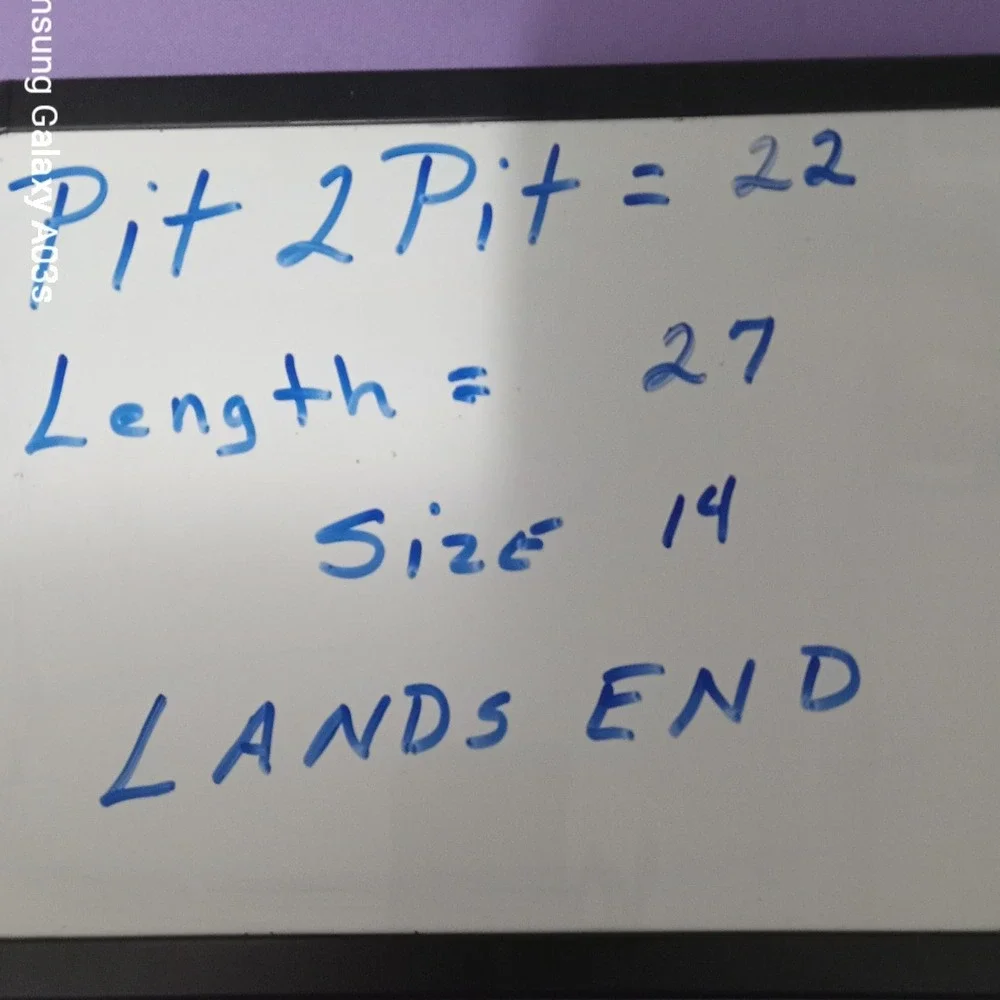 Pit 2 Pit = 22
Length = 27
Size 14
LANDS END
nsung Galaxy A03s